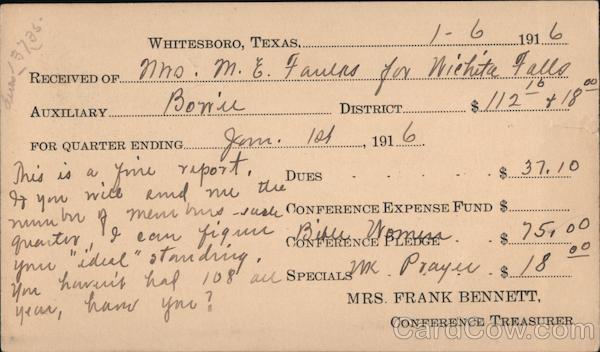 WHITESBORO, TEXAS, 1-6 1916
RECEIVED OF Mrs. M. E. for Wichita Falls
AUXILIARY Bowie DISTRICT $ 112 10 + 18 00
FOR QUARTER ENDING Jan. 1st, 1916.
This is a fine report.
If you will send me the
number of members each
quarter, I can figure
your "ideal" standing.
You haven't had 108 all
year, have you?
DUES $ 37.10
CONFERENCE EXPENSE FUND $
Bible Womens
CONFERENCE PLEDGE $ 75.00
SPECIALS Wk Prayer $ 18 00
MRS. FRANK BENNETT,
CONFERENCE TREASURER
CardCow.com